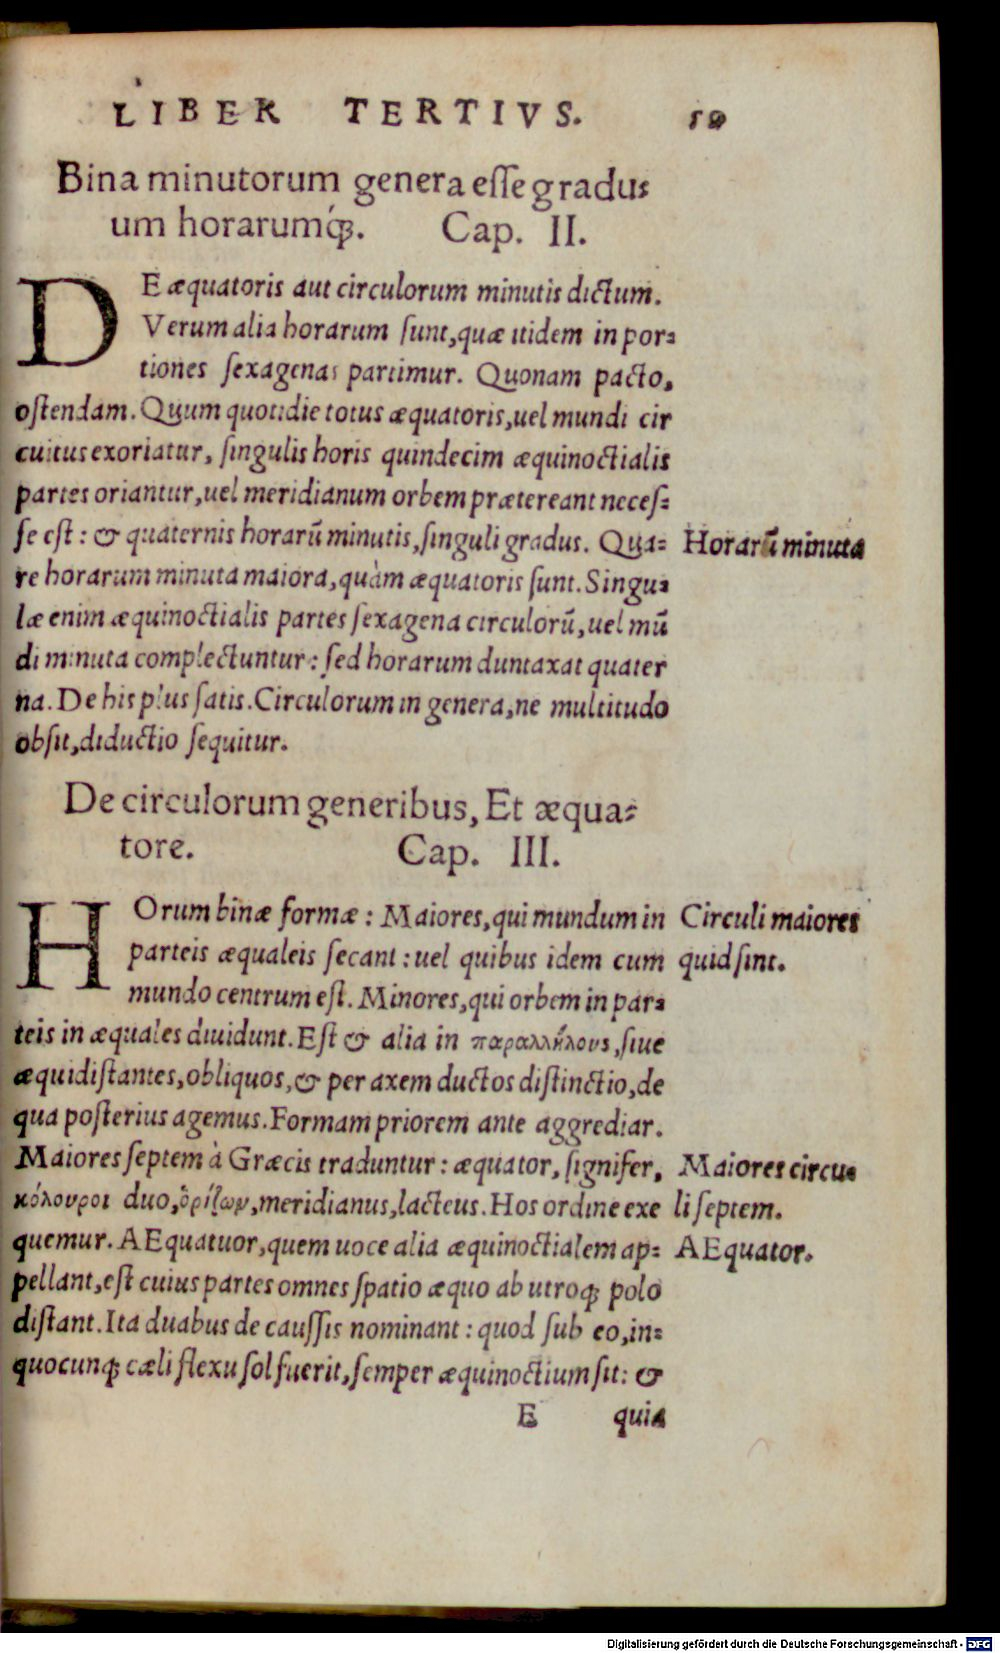 LIBER TERTIVS. 59
Bina minutorum genera esse gradu⸗
um horarumq́;. Cap. II.
DE æquatoris aut circulorum minutis dictum.
Verum alia horarum sunt, quæ itidem in por⸗
tiones sexagenas partimur. Quonam pacto,
ostendam. Quum quotidie totus æquatoris, uel mundi cir
cuitus exoriatur, singulis horis quindecim æquinoctialis
partes oriantur, uel meridianum orbem prætereant neces⸗
se est: & quaternis horarū minutis, singuli gradus. Qua⸗
Horarū minuta
re horarum minuta maiora, quàm æquatoris sunt. Singu⸗
læ enim æquinoctialis partes sexagena circulorū, uel mū
di minuta complectuntur: sed horarum duntaxat quater
na. De his plus satis. Circulorum in genera, ne multitudo
obsit, diductio sequitur.
De circulorum generibus, Et æqua⸗
tore. Cap. III.
HOrum binæ formæ: Maiores, qui mundum in
Circuli maiores
parteis æqualeis secant: uel quibus idem cum
quid sint.
mundo centrum est. Minores, qui orbem in par⸗
teis in æquales diuidunt. Est & alia in παραλλήλους, siue
æquidistantes, obliquos, & per axem ductos distinctio, de
qua posterius agemus. Formam priorem ante aggrediar.
Maiores septem à Græcis traduntur: æquator, signifer,
Maiores circu⸗
κόλουροι duo, ὁρίζων, meridianus, lacteus. Hos ordine exe
li septem.
quemur. AEquatuor, quem uoce alia æquinoctialem ap⸗
AEquator.
pellant, est cuius partes omnes spatio æquo ab utroq; polo
distant. Ita duabus de caussis nominant: quod sub eo, in⸗
quocunq; cæli flexu sol fuerit, semper æquinoctium sit: &
E quia
Digitalisierung gefördert durch die Deutsche Forschungsgemeinschaft - DFG